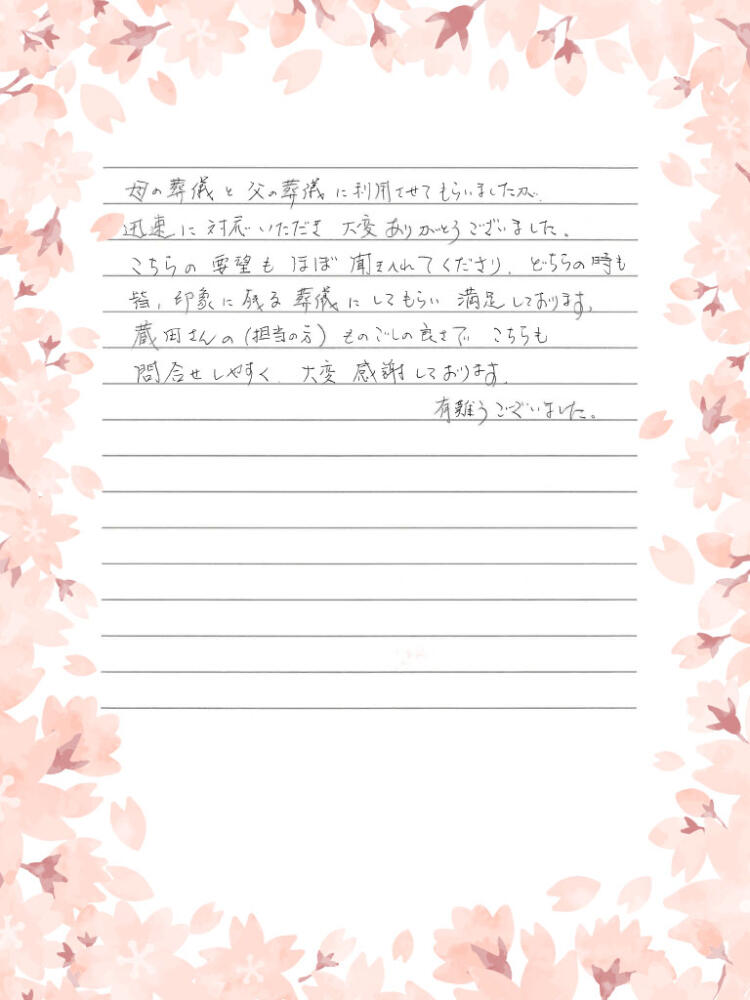 母の葬儀と父の葬儀に利用させてもらいましたが、
迅速に対応いただき大変ありがとうございました。
こちらの要望もほぼ聞き入れてくださり、どちらの時も
皆、印象に残る葬儀にしてもらい満足しております。
蔵田さんの(担当の方)ものごしの良さで、こちらも
問合せしやすく、大変感謝しております。
有難うございました。